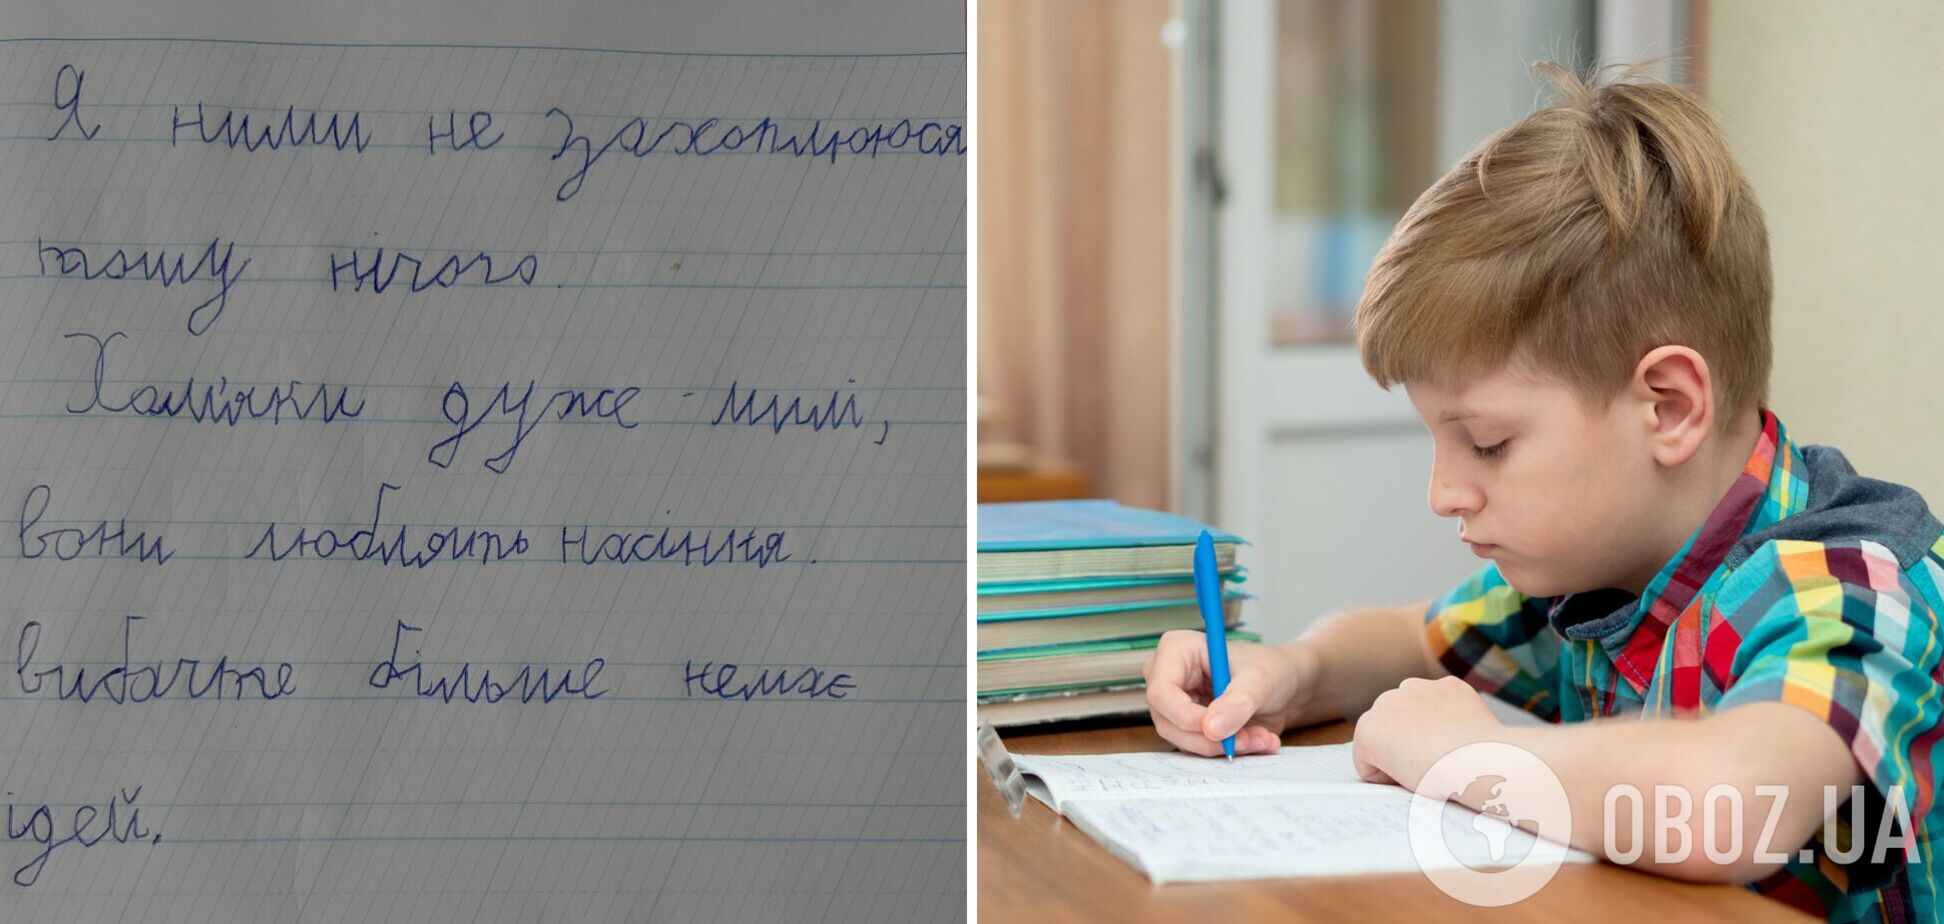 Я ними не захоплююся
тому нічого.
Хом'яки дуже милі,
вони люблять насіння.
вибачте більше немає
ідей.
OBOZ.UA